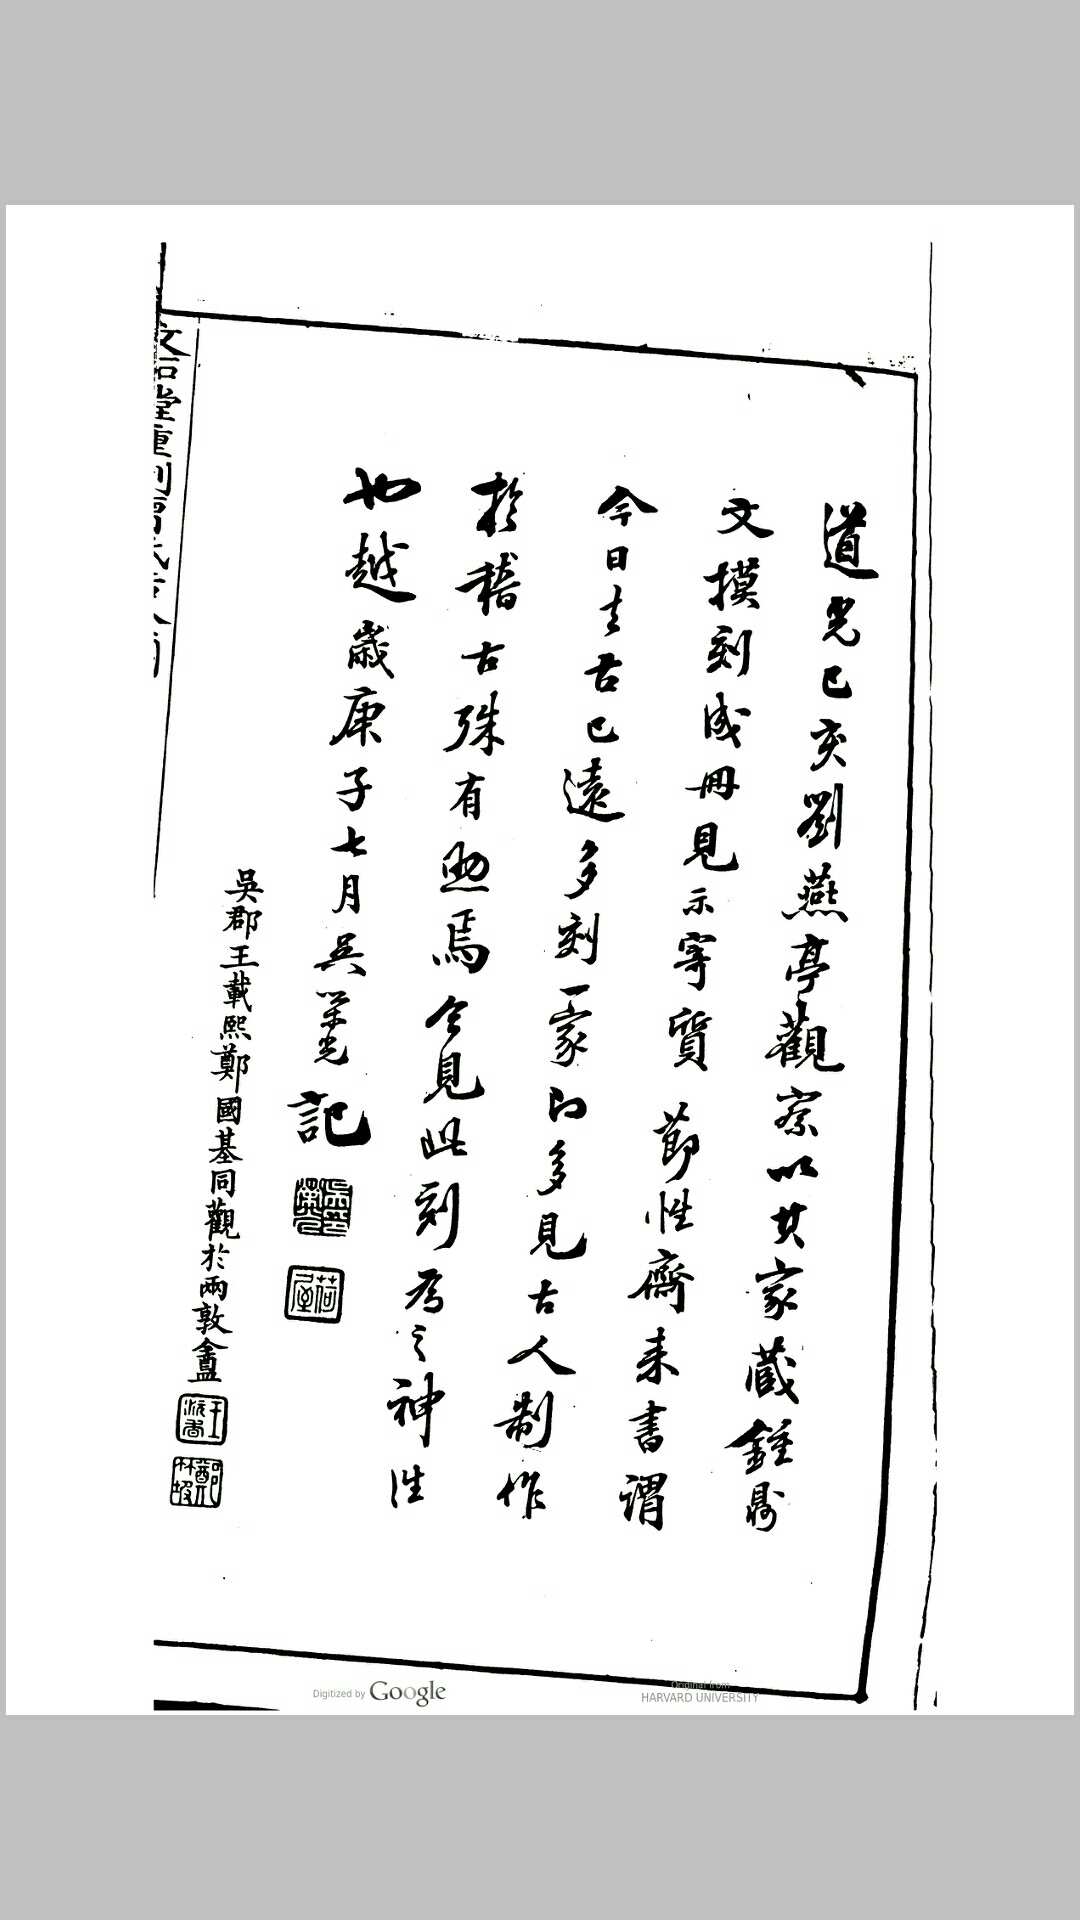 道光己亥劉燕亭觀察以其家藏鍾鼎
文摸刻成冊見示寄質節性齋來書謂
今日去古已遠多刻一家即多見古人制作
於稽古殊有助焉今見此刻為之神往
也越歲庚子七月吳榮光記
吳榮光
荷屋
吳郡王載熙鄭國基同觀於兩敦盦
鄭竹坡
文石堂重刊曾氏吉
Digitized by Google
Original from
HARVARD UNIVERSITY